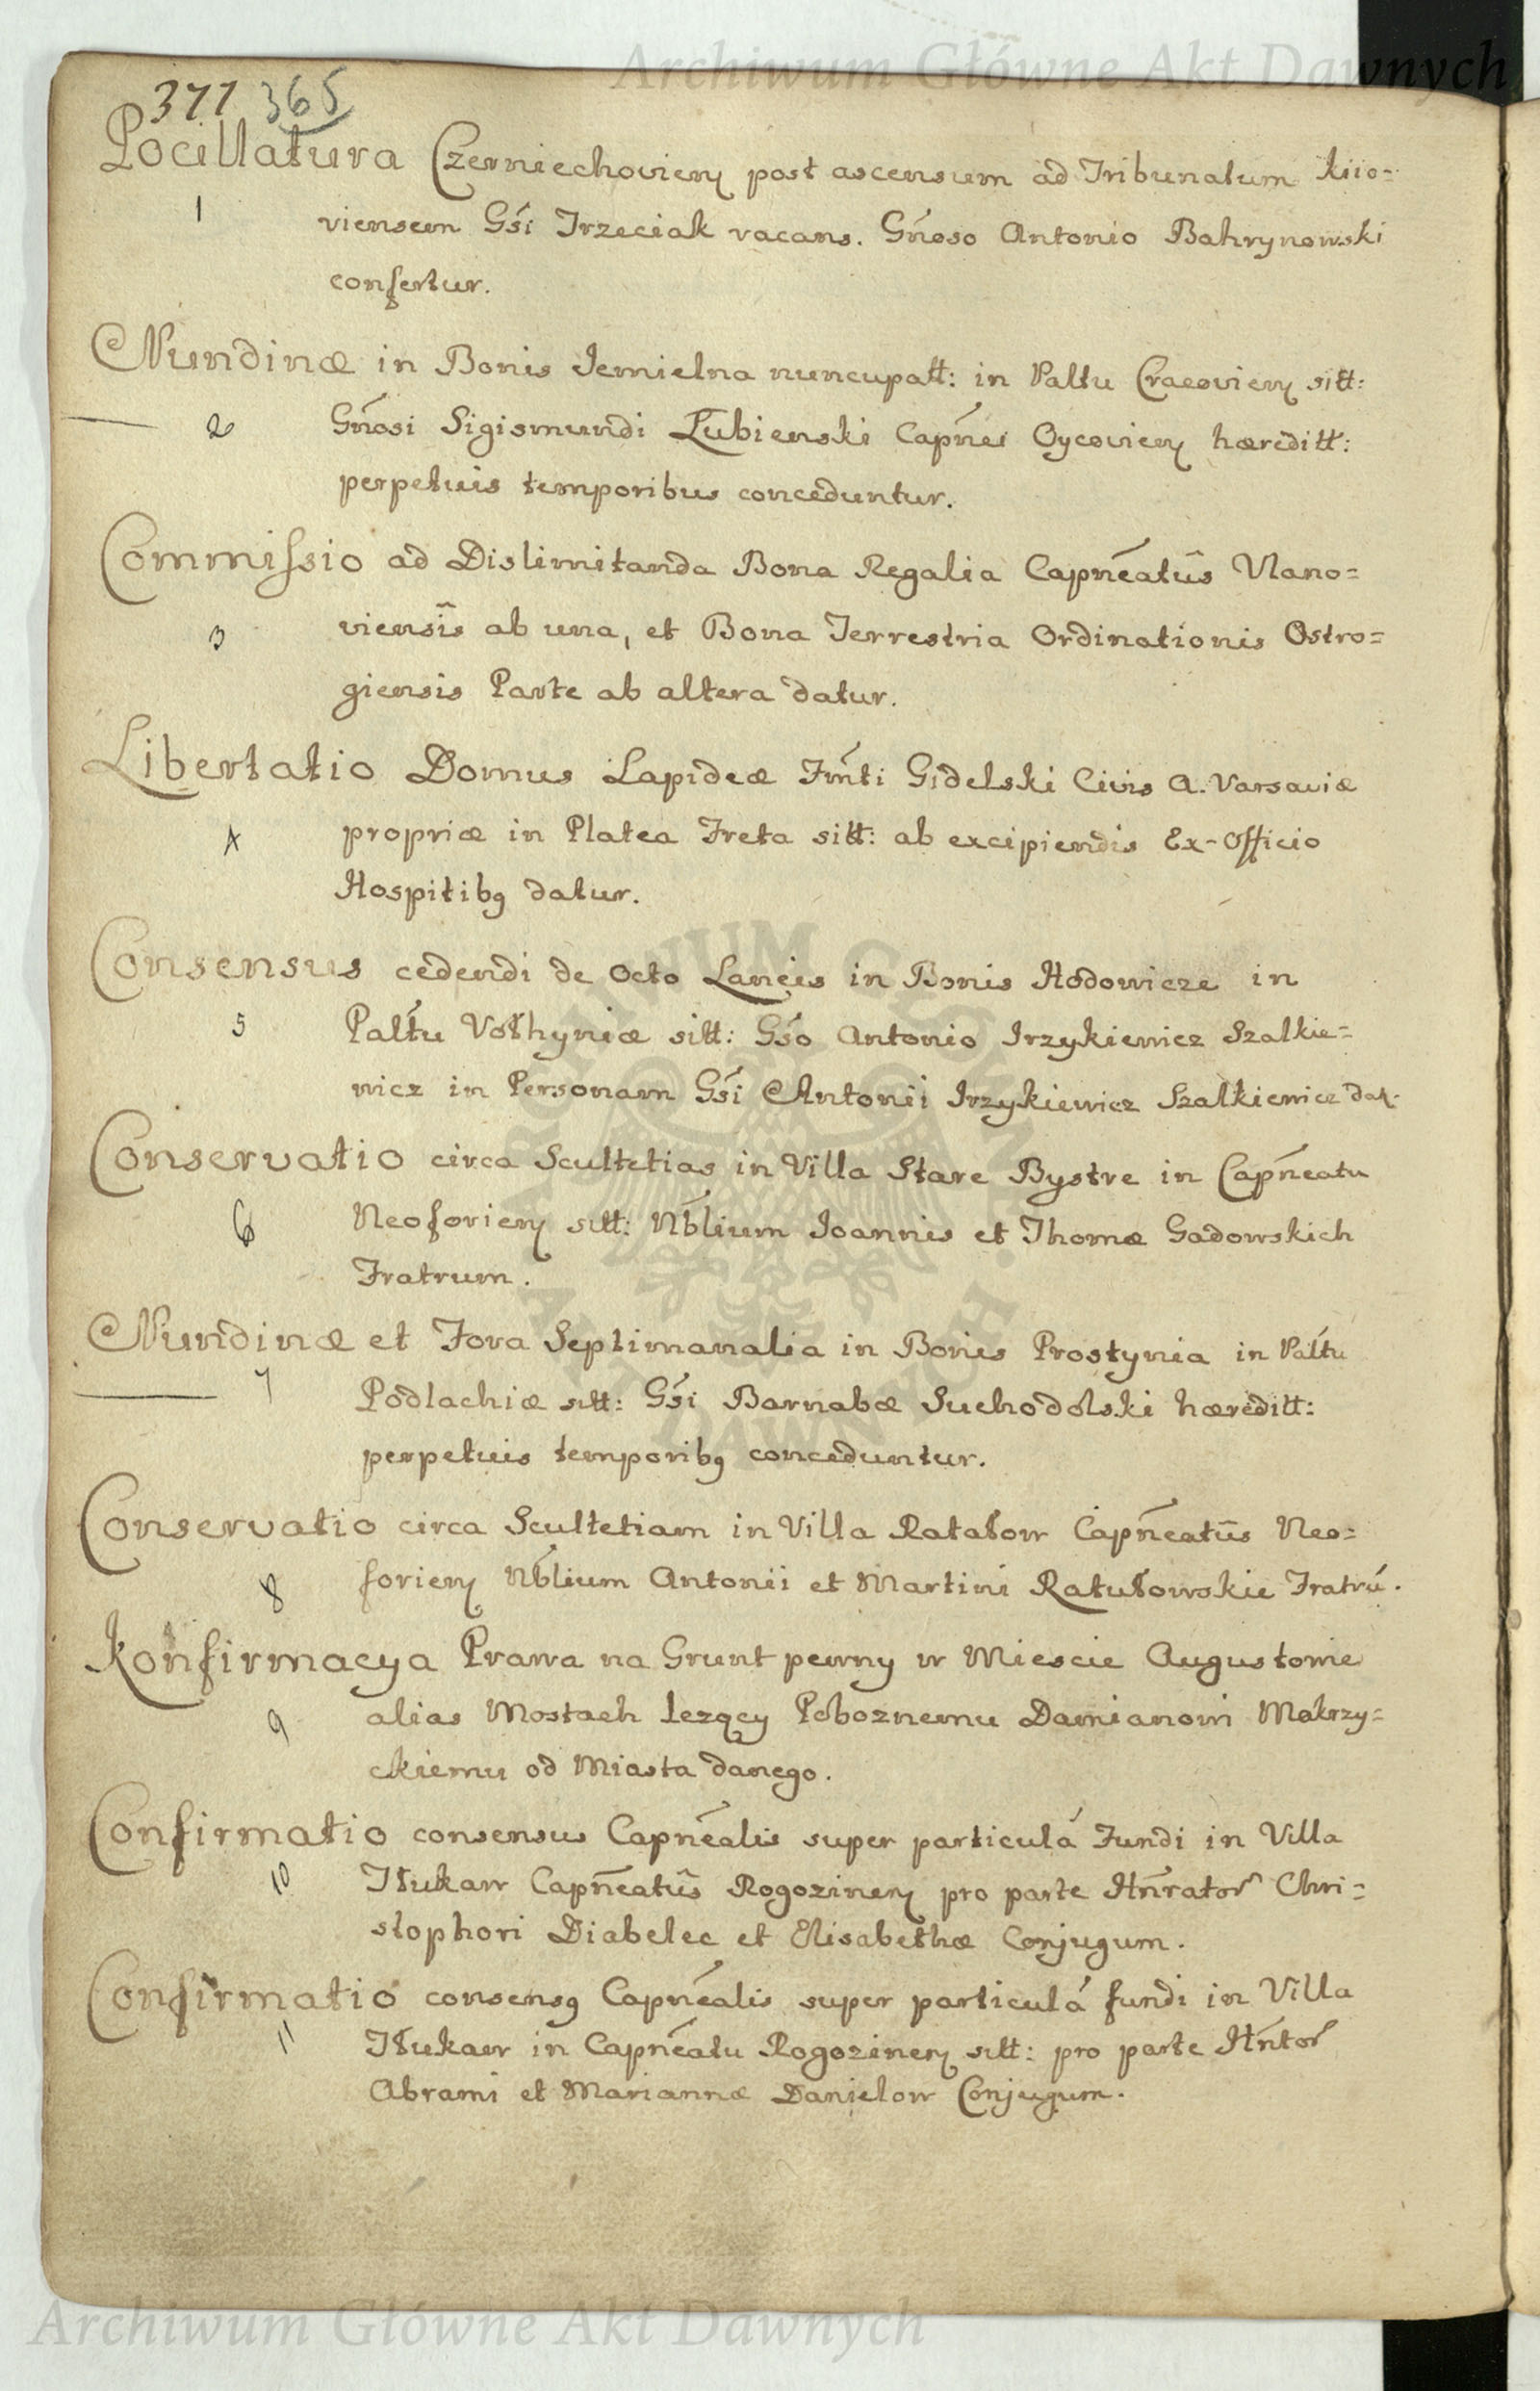 Archiwum Główne Akt Dawnych
371 365
Pocillatura Czerniechovien̄ post ascensum ad Tribunatum kiio=
1
viensem Gśi Trzeciak vacans. Gn̄oso Antonio Bahrynowski
confertur.
Nundinæ in Bonis Jemielna nuncupatt: in Paltu Cracovien̄ sitt:
2
Gn̄osi Sigismundi Łubienski Capn̄ei Oycovien̄ hæreditt:
perpetuis temporibus conceduntur.
Commissio ad Dislimitanda Bona Regalia Capn̄eatûs Vlano=
3
viensîs ab una, et Bona Terrestria Ordinationis Ostro=
giensis Parte ab altera datur.
Libertatio Domus Lapideæ Fḿti Gidelski Civis A. Varsaviæ
4
propriæ in Platea Freta sitt: ab excipiendis Ex-Officio
Hospitibꝰ datur.
Consensus cedendi de Octo Laneis in Bonis Hodowicze in
5
Paĺtu Vołhyniæ sitt: Gśo Antonio Irzykiewicz Szalkie=
wicz in Personam Gśi Antonii Irzykiewicz Szalkiewicz dat.
Conservatio circa Scultetias in Villa Stare Bystre in Capn̄eatu
6
Neoforien̄ sitt: Nb́lium Joannis et Thomæ Gadowskich
Fratrum.
Nundinæ et Fora Septimanalia in Bonis Prostynia in Paĺtu
7
Podlachiæ sitt: Gśi Barnabæ Suchodolski hæreditt:
perpetuis temporibꝰ conceduntur.
Conservatio circa Scultetiam in Villa Ratałow Capn̄eatûs Neo=
8
forien̄ Nb́lium Antonii et Martini Ratułowskie Fratrú.
Konfirmacya Prawa na Grunt pewny w Miescie Augustowie
9
alias Mostach lezący Poboznemu Damianowi Mokrzy=
ckiemu od Miasta danego.
Confirmatio consensus Capn̄ealis super particulá Fundi in Villa
10
Tłukaw Capn̄eatûs Rogozinen̄ pro parte Hn̄rator̄ Chri=
stophori Diabelec et Elisabethæ Conjugum.
Confirmatio consensꝰ Capn̄ealis super particulá fundi in Villa
11
Tłukaw in Capn̄eatu Rogozinen̄ sitt: pro parte Hn̄tor̄
Abrami et Mariannæ Danielow Conjugum.
Archiwum Główne Akt Dawnych